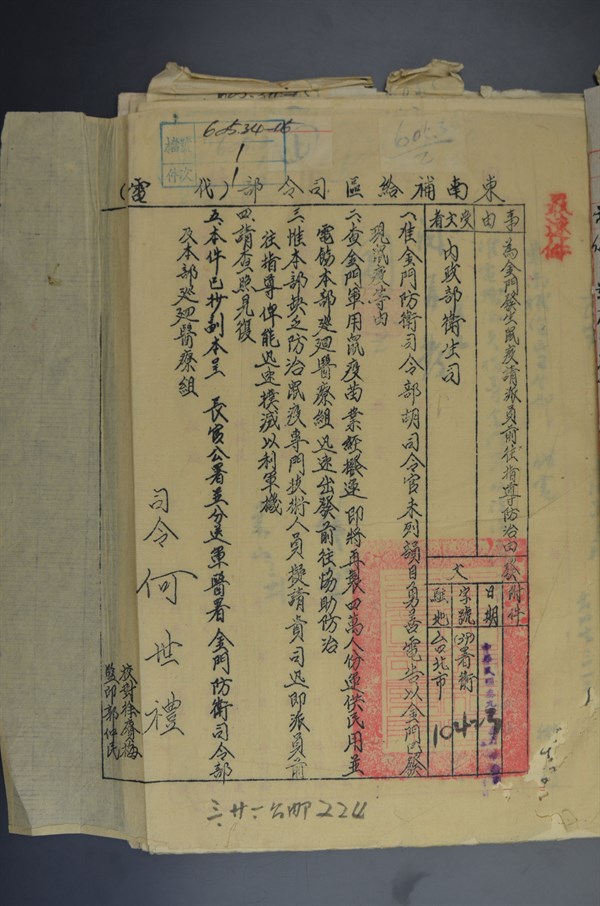 60534-06
檔次
件
6053
最速件
東南補給區司令部(代電)
事由
為金門發生鼠疫請派員前往指導防治由
受文者
內政部衛生司
附件
發文
日期
字號
(39)署衛
10473
駐地
台北市
一、准金門防衛司令部胡司令官未列韻目勇吾電告以金門已發
現鼠疫等由
二、查金門軍用鼠疫苗業經搬運即將再製四萬人份運供民用並
電飭本部巡迴醫療組迅速出發前往協助防治
三、惟本部缺乏防治鼠疫專門技術人員擬請貴司迅即派員前
往指導俾能迅速撲滅以利軍機
四、請查照見復
五、本件已抄副本呈 長官公署並分送軍醫署金門防衛司令部
及本部巡迴醫療組
司令何世禮
校對徐賡梅
監印郭仲民
三、廿一
224